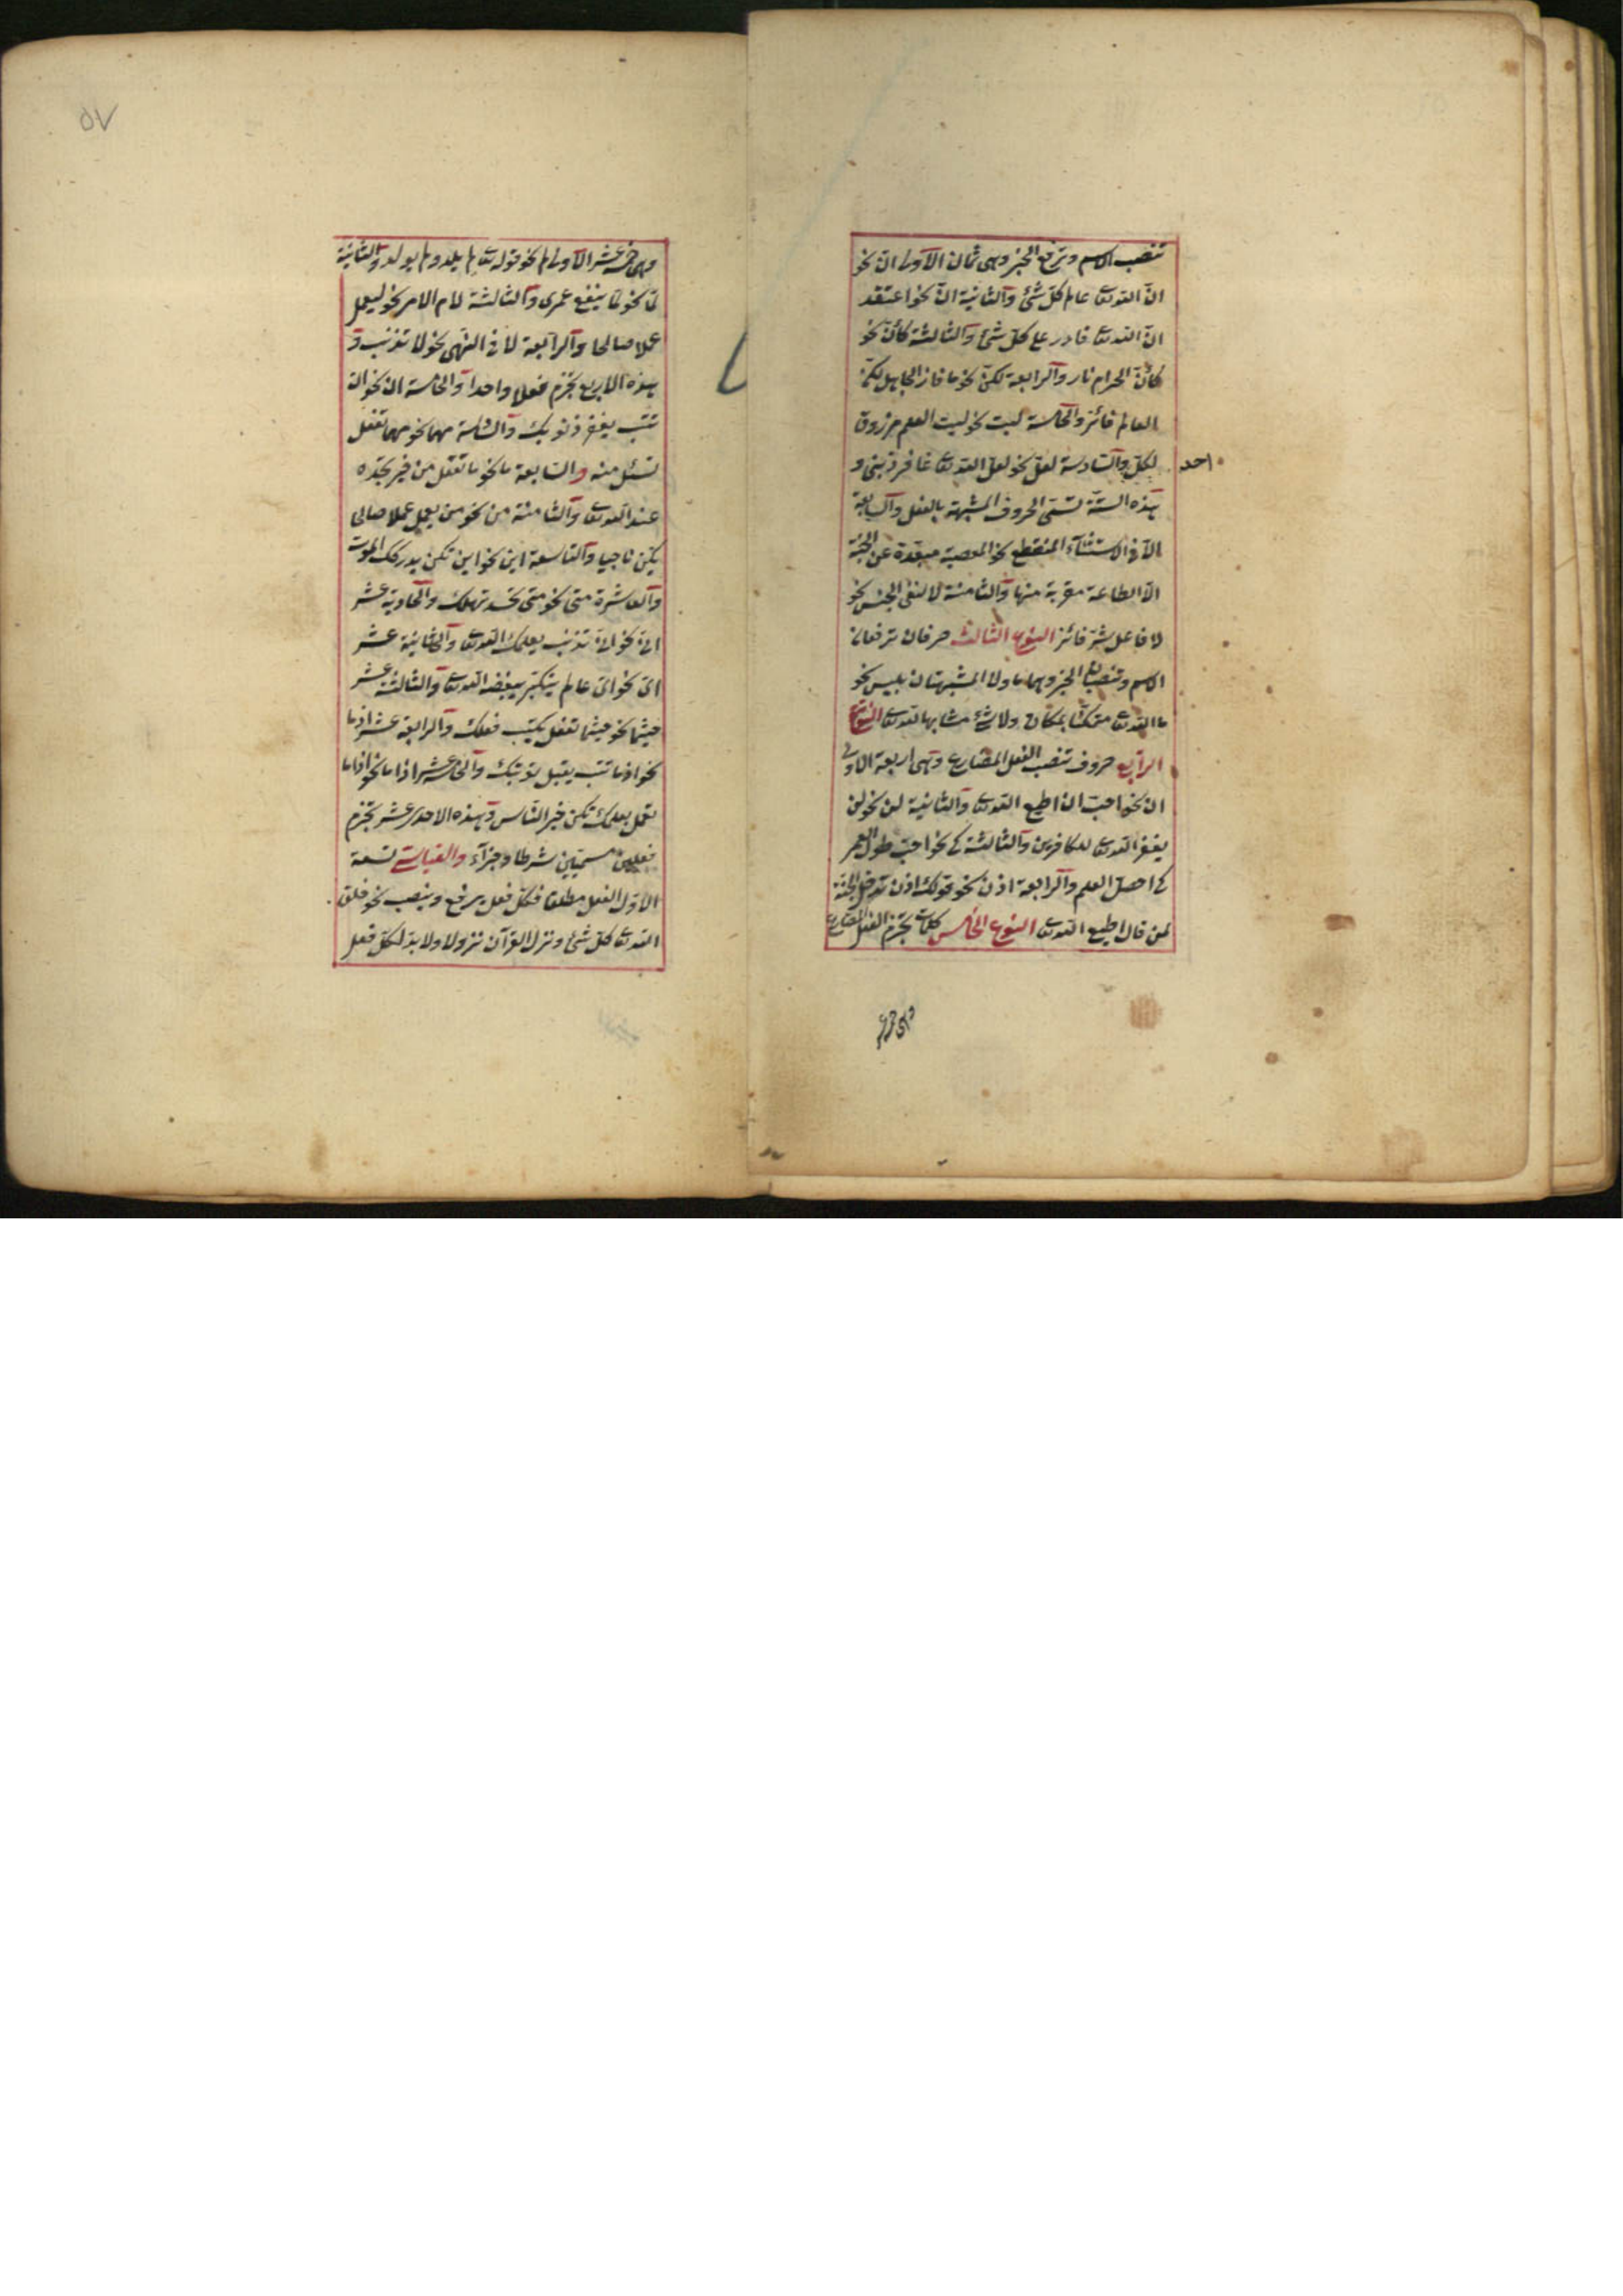 تنصب الاسم وترفع الخبر وهى ثمان الاولى انّ نحو
انّ الله تعالى عالم كلّ شئ والثانية انّ نحو اعتقد
انّ الله تعالى قادر على كلّ شئ والثالثة كأنّ نحو
كأنّ الحرام نار والرابعة لكنّ نحو ما فاز الجاهل لكنّ
العالم فائز والخامسة ليت نحو ليت العلم مرزوق
لكلّ والسّادسة لعلّ نحو لعلّ الله تعالى غافر ذنبى و
احد
هذه الستّة تسمّى الحروف المشبهة بالفعل والسابعة
الاّ فى الاستثنآء المنقطع نحو المعصية مبعدة عن الجنّة
الاّ الطاعة مقربة منها والثامنة لا لنفى الجنس نحو
لا فاعل شرّ فائز النوع الثالث حرفان ترفعان
الاسم وتنصبان الخبر وهما ما ولا المشبهتان بليس نحو
ما الله تعالى متمكّنا بمكان ولا شئ مشابها لله تعالى النوع
الرابع حروف تنصب الفعل المضارع وهى اربعة الاولى
ان نحو احبّ ان اطيع الله تعالى والثانية لن نحو لن
يغفر الله تعالى للكافرين والثالثة كى نحو احبّ طول العمر
كى احصل العلم والرابعة اذن نحو قولك اذن تدخل الجنّة
لمن قال اطيع الله تعالى النوع الخامس كلمات تجزم الفعل المضارع
وهى خمسة
٥٧
وهى خمسة عشر الاولى لم نحو قوله تعالى لم يلد ولم يولد والثانية
لمّا نحو لمّا ينفع عمرى والثالثة لام الامر نحو ليعمل
عملا صالحا والرابعة لا فى النهى نحو لا تذنب و
هذه الاربع تجزم فعلا واحدا والخامسة ان نحو ان
تتب يغفر ذنوبك والسّادسة مهما نحو مهما تفعل
تسئل منه والسّابعة ما نحو ما تفعل من خير تجده
عند الله تعالى والثامنة من نحو من يعمل عملا صالحا
يكن ناجيا والتاسعة اين نحو اين تكن يدركك الموت
والعاشرة متى نحو متى تحسد تهلك والحادية عشر
انّى نحو انّى تذنب يعلمك الله تعالى والثانية عشر
اىّ نحو اىّ عالم يتكبّر يبغضه الله تعالى والثالثة عشر
حيثما نحو حيثما تفعل يكتب فعلك والرابعة عشر اذما
نحو اذما تتب يقبل توبتك والخامسة عشر اذا ما نحو اذا ما
تعمل بعلمك تكن خير النّاس وهذه الاحدى عشر تجزم
فعلين مسمّيين شرطا وجزآء والقياسيّة تسعة
الاوّل الفعل مطلقا فكلّ فعل يرفع وينصب نحو خلق
الله تعالى كلّ شئ ونزل القرآن نزولا ولا بدّ لكلّ فعل